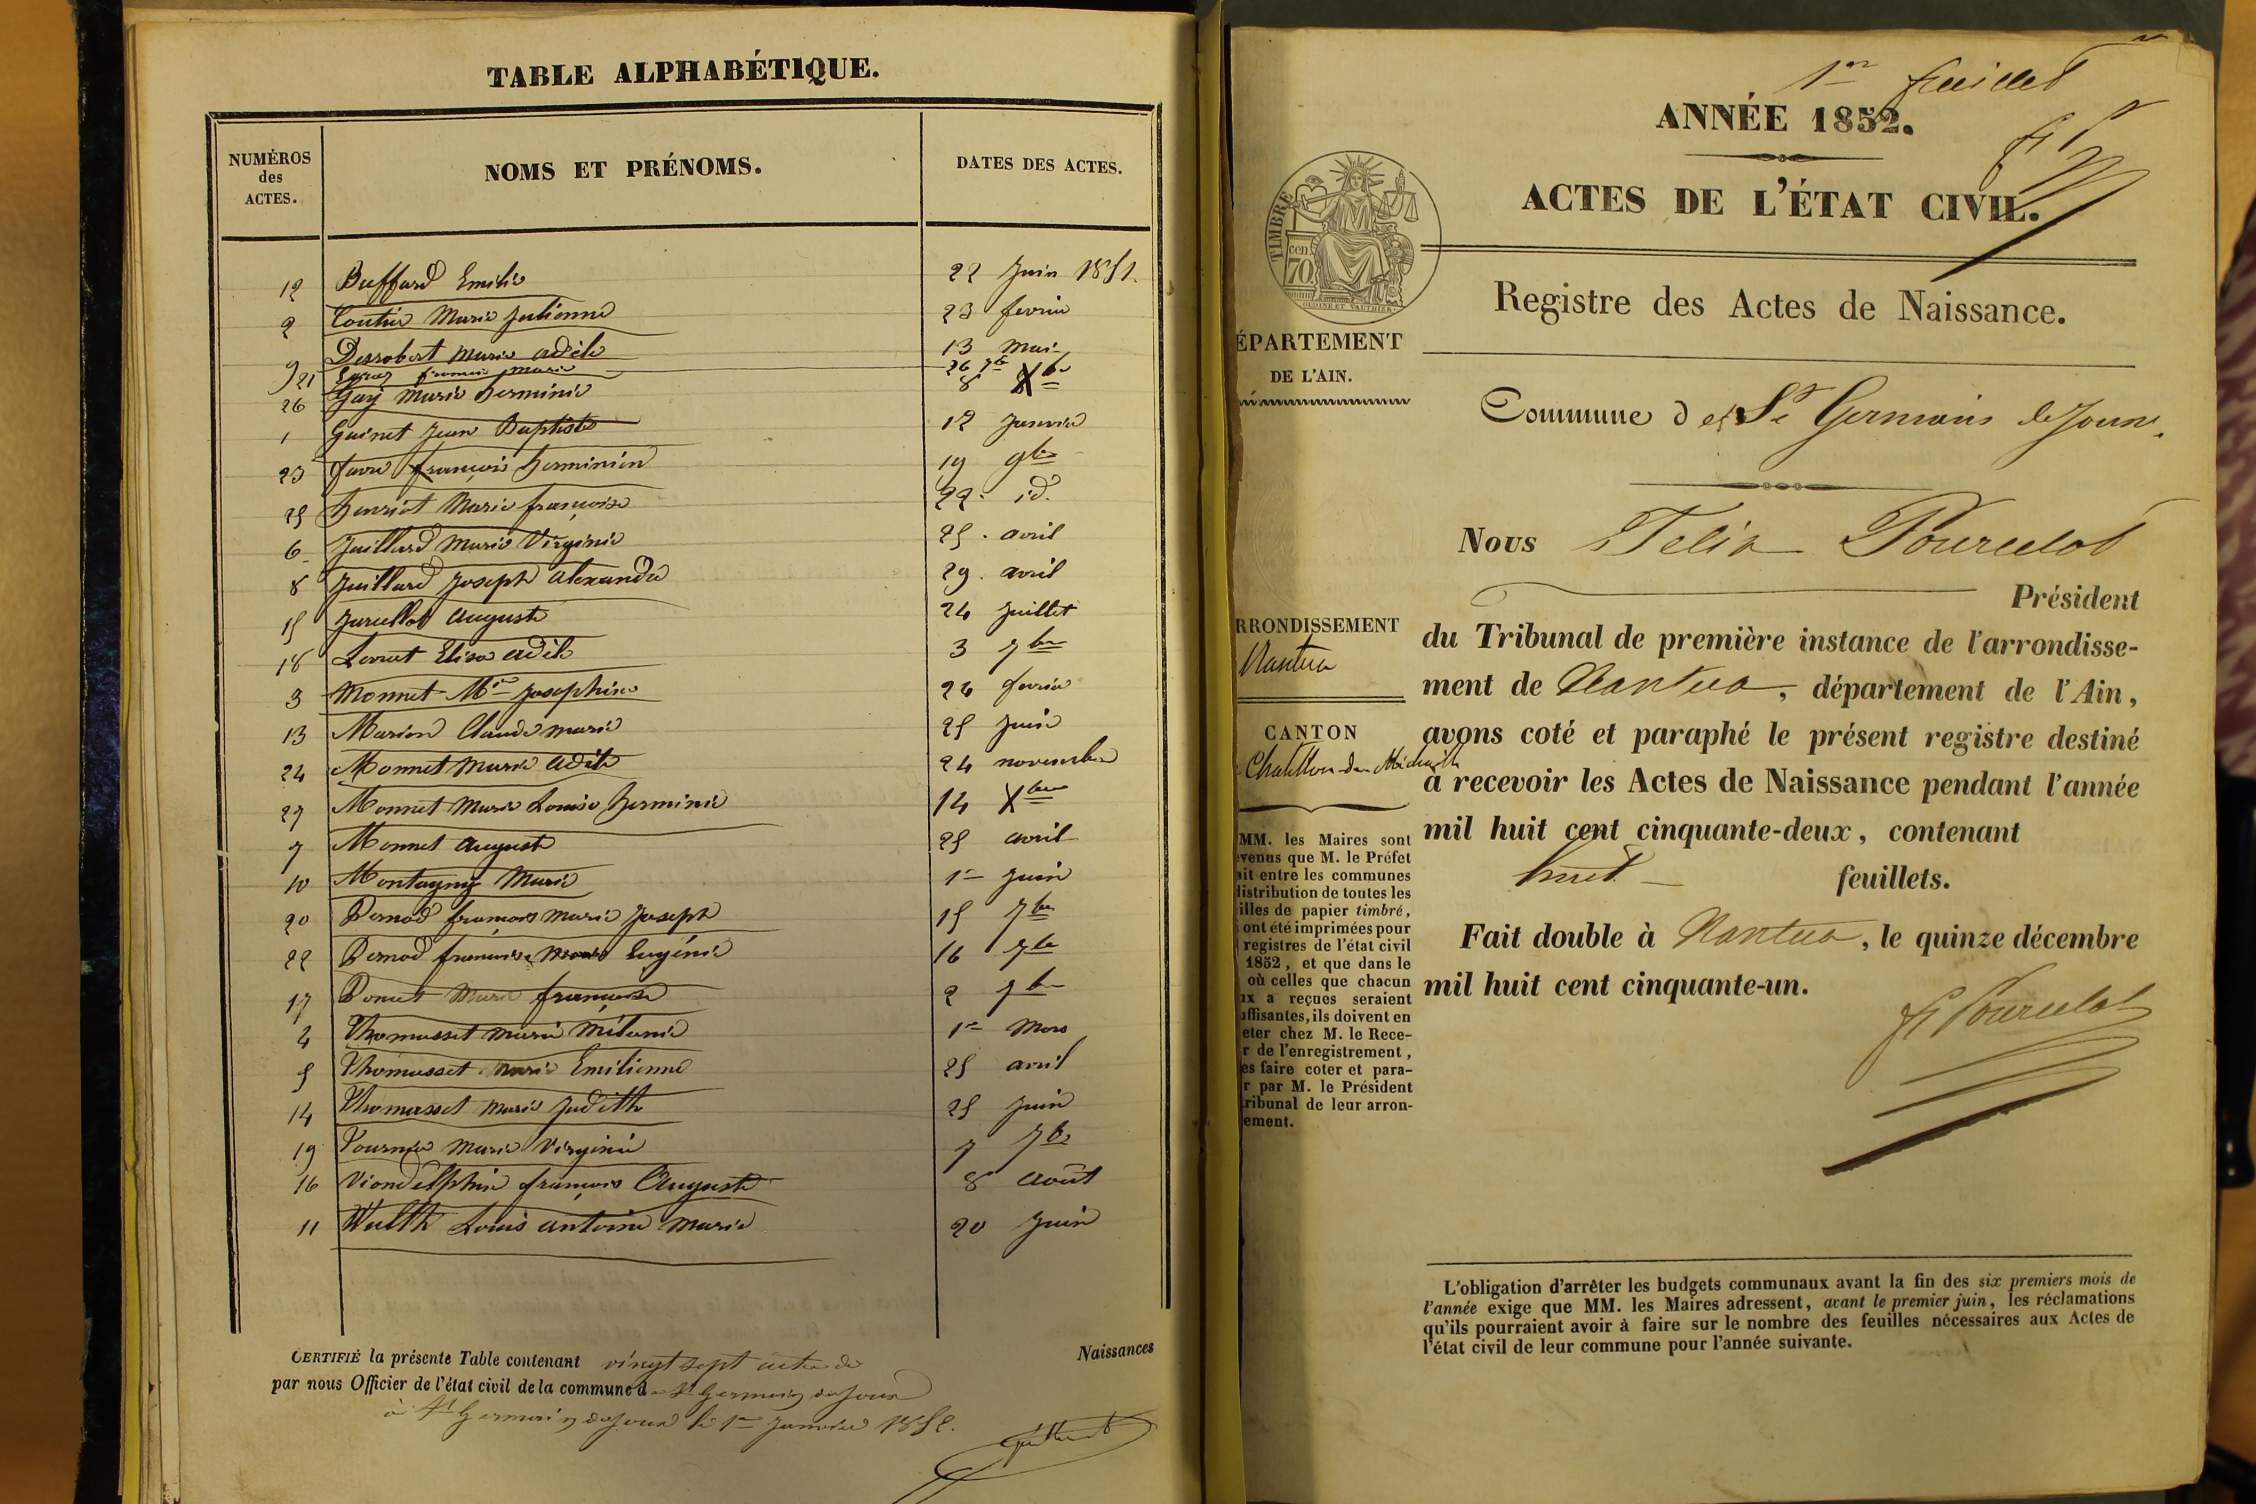 TABLE ALPHABÉTIQUE.
NUMÉROS
des
ACTES.
NOMS ET PRÉNOMS.
DATES DES ACTES.
12 Buffard Emilie 22 Juin 1851.
2 Coutier Marie Julienne 23 fevrier
9 Desrobert Marie adèle 13 Mai
21 françois Marie 26 7bre
26 Gay Marie herminie 8 Xbre
1 Guinet Jean Baptiste 12 Janvier
23 favre françois herminien 19 9bre
25 henriot Marie françoise 22. id.
6 Juillard Marie Virginie 25. avril
8 Juillard Joseph alexandre 29. avril
15 Jurullot auguste 24 Juillet
18 Levrat Elisa adèle 3 7bre
3 Monnet Mie Josephine 24 fevrier
13 Marion Claude marie 25 Juin
24 Monnet Marie adèle 24 novembre
27 Monnet Marie Louise herminie 14 Xbre
7 Monnet auguste 25 avril
10 Montagny Marie 1er Juin
20 Pernod françois Marie Joseph 15 7bre
22 Pernod françoise Marie Eugénie 16 7bre
17 Poncet Marie françoise 2 7bre
4 Thomasset Marie Mélanie 1er Mars
5 Thomasset Marie Emilienne 25 avril
14 Thomasset Marie Judith 25 Juin
19 Tournier Marie Virginie 7 7bre
16 Viondelphin françois Auguste 8 Août
11 Wulth Louis antoine Marie 20 Juin
CERTIFIÉ la présente Table contenant vingt sept actes de Naissances
par nous Officier de l'état civil de la commune d e St Germain de Joux
à St Germain de Joux le 1er Janvier 1852.
1er feuillet
ANNÉE 1852.
ACTES DE L'ÉTAT CIVIL.
TIMBRE
70 cen
OUDINÉ ET VAUTHIER
Registre des Actes de Naissance.
ÉPARTEMENT
DE L'AIN.
Commune de St Germain de Joux.
Nous Félix Pourcelot
Président
RRONDISSEMENT
Nantua
du Tribunal de première instance de l'arrondisse-
ment de Nantua, département de l'Ain,
CANTON
Chatillon de Michaille
avons coté et paraphé le présent registre destiné
à recevoir les Actes de Naissance pendant l'année
mil huit cent cinquante-deux, contenant
huit feuillets.
Fait double à Nantua, le quinze décembre
mil huit cent cinquante-un.
F Pourcelot
MM. les Maires sont
venus que M. le Préfet
it entre les communes
distribution de toutes les
illes de papier timbré,
ont été imprimées pour
registres de l'état civil
1852, et que dans le
où celles que chacun
ux a reçues seraient
uffisantes, ils doivent en
eter chez M. le Rece-
r de l'enregistrement,
es faire coter et para-
r par M. le Président
ribunal de leur arron-
ement.
L'obligation d'arrêter les budgets communaux avant la fin des six premiers mois de
l'année exige que MM. les Maires adressent, avant le premier juin, les réclamations
qu'ils pourraient avoir à faire sur le nombre des feuilles nécessaires aux Actes de
l'état civil de leur commune pour l'année suivante.